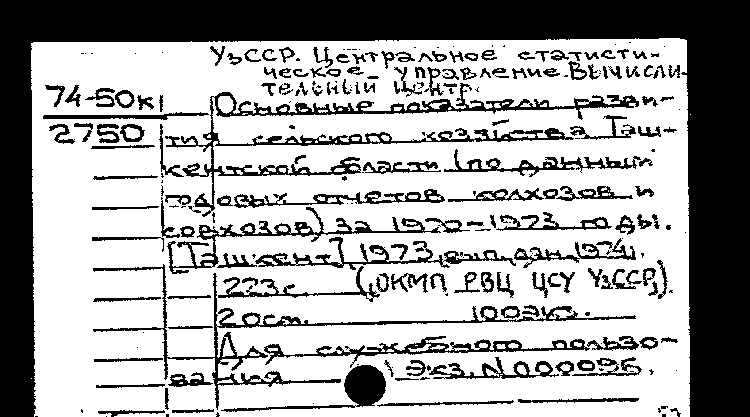 УзССР. Центральное статисти-
ческое управление. Вычисли-
тельный центр.
74-50к
2750
Основные показатели разви-
тия сельского хозяйства Таш-
кентской области (по данным
годовых отчетов колхозов и
совхозов) за 1970-1973 годы.
[Ташкент] 1973, вып. дан. 1974.
223 с. (ОКМП РВЦ ЦСУ УзССР)
20 см. 100 экз.
Для служебного пользо-
вания Экз. N 000096.